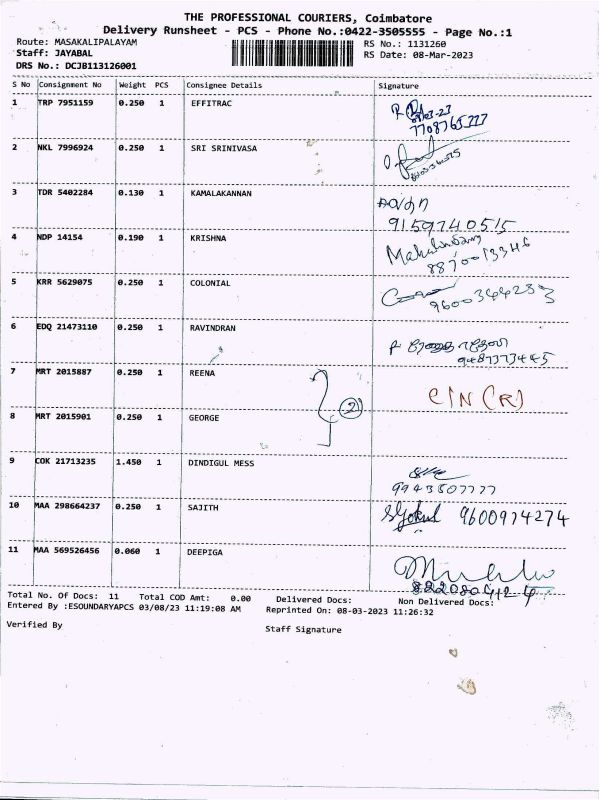 THE PROFESSIONAL COURIERS, Coimbatore
Delivery Runsheet - PCS - Phone No.:0422-3505555 - Page No.:1
Route: MASAKALIPALAYAM RS No.: 1131260
Staff: JAYABAL RS Date: 08-Mar-2023
DRS No.: DCJB113126001
S No Consignment No Weight PCS Consignee Details Signature
1 TRP 7951159 0.250 1 EFFITRAC
7708765227
2 NKL 7996924 0.250 1 SRI SRINIVASA
3 TDR 5402284 0.130 1 KAMALAKANNAN
9159740515
4 NDP 14154 0.190 1 KRISHNA
8870013346
5 KRR 5629075 0.250 1 COLONIAL
9600344233
6 EDQ 21473110 0.250 1 RAVINDRAN
9487373445
7 MRT 2015887 0.250 1 REENA C/N (R)
2
8 MRT 2015901 0.250 1 GEORGE
9 COK 21713235 1.450 1 DINDIGUL MESS
9943507777
10 MAA 298664237 0.250 1 SAJITH 9600974274
11 MAA 569526456 0.060 1 DEEPIGA
Total No. Of Docs: 11 Total COD Amt: 0.00 Delivered Docs: Non Delivered Docs:
Entered By :ESOUNDARYAPCS 03/08/23 11:19:08 AM Reprinted On: 08-03-2023 11:26:32
Verified By Staff Signature